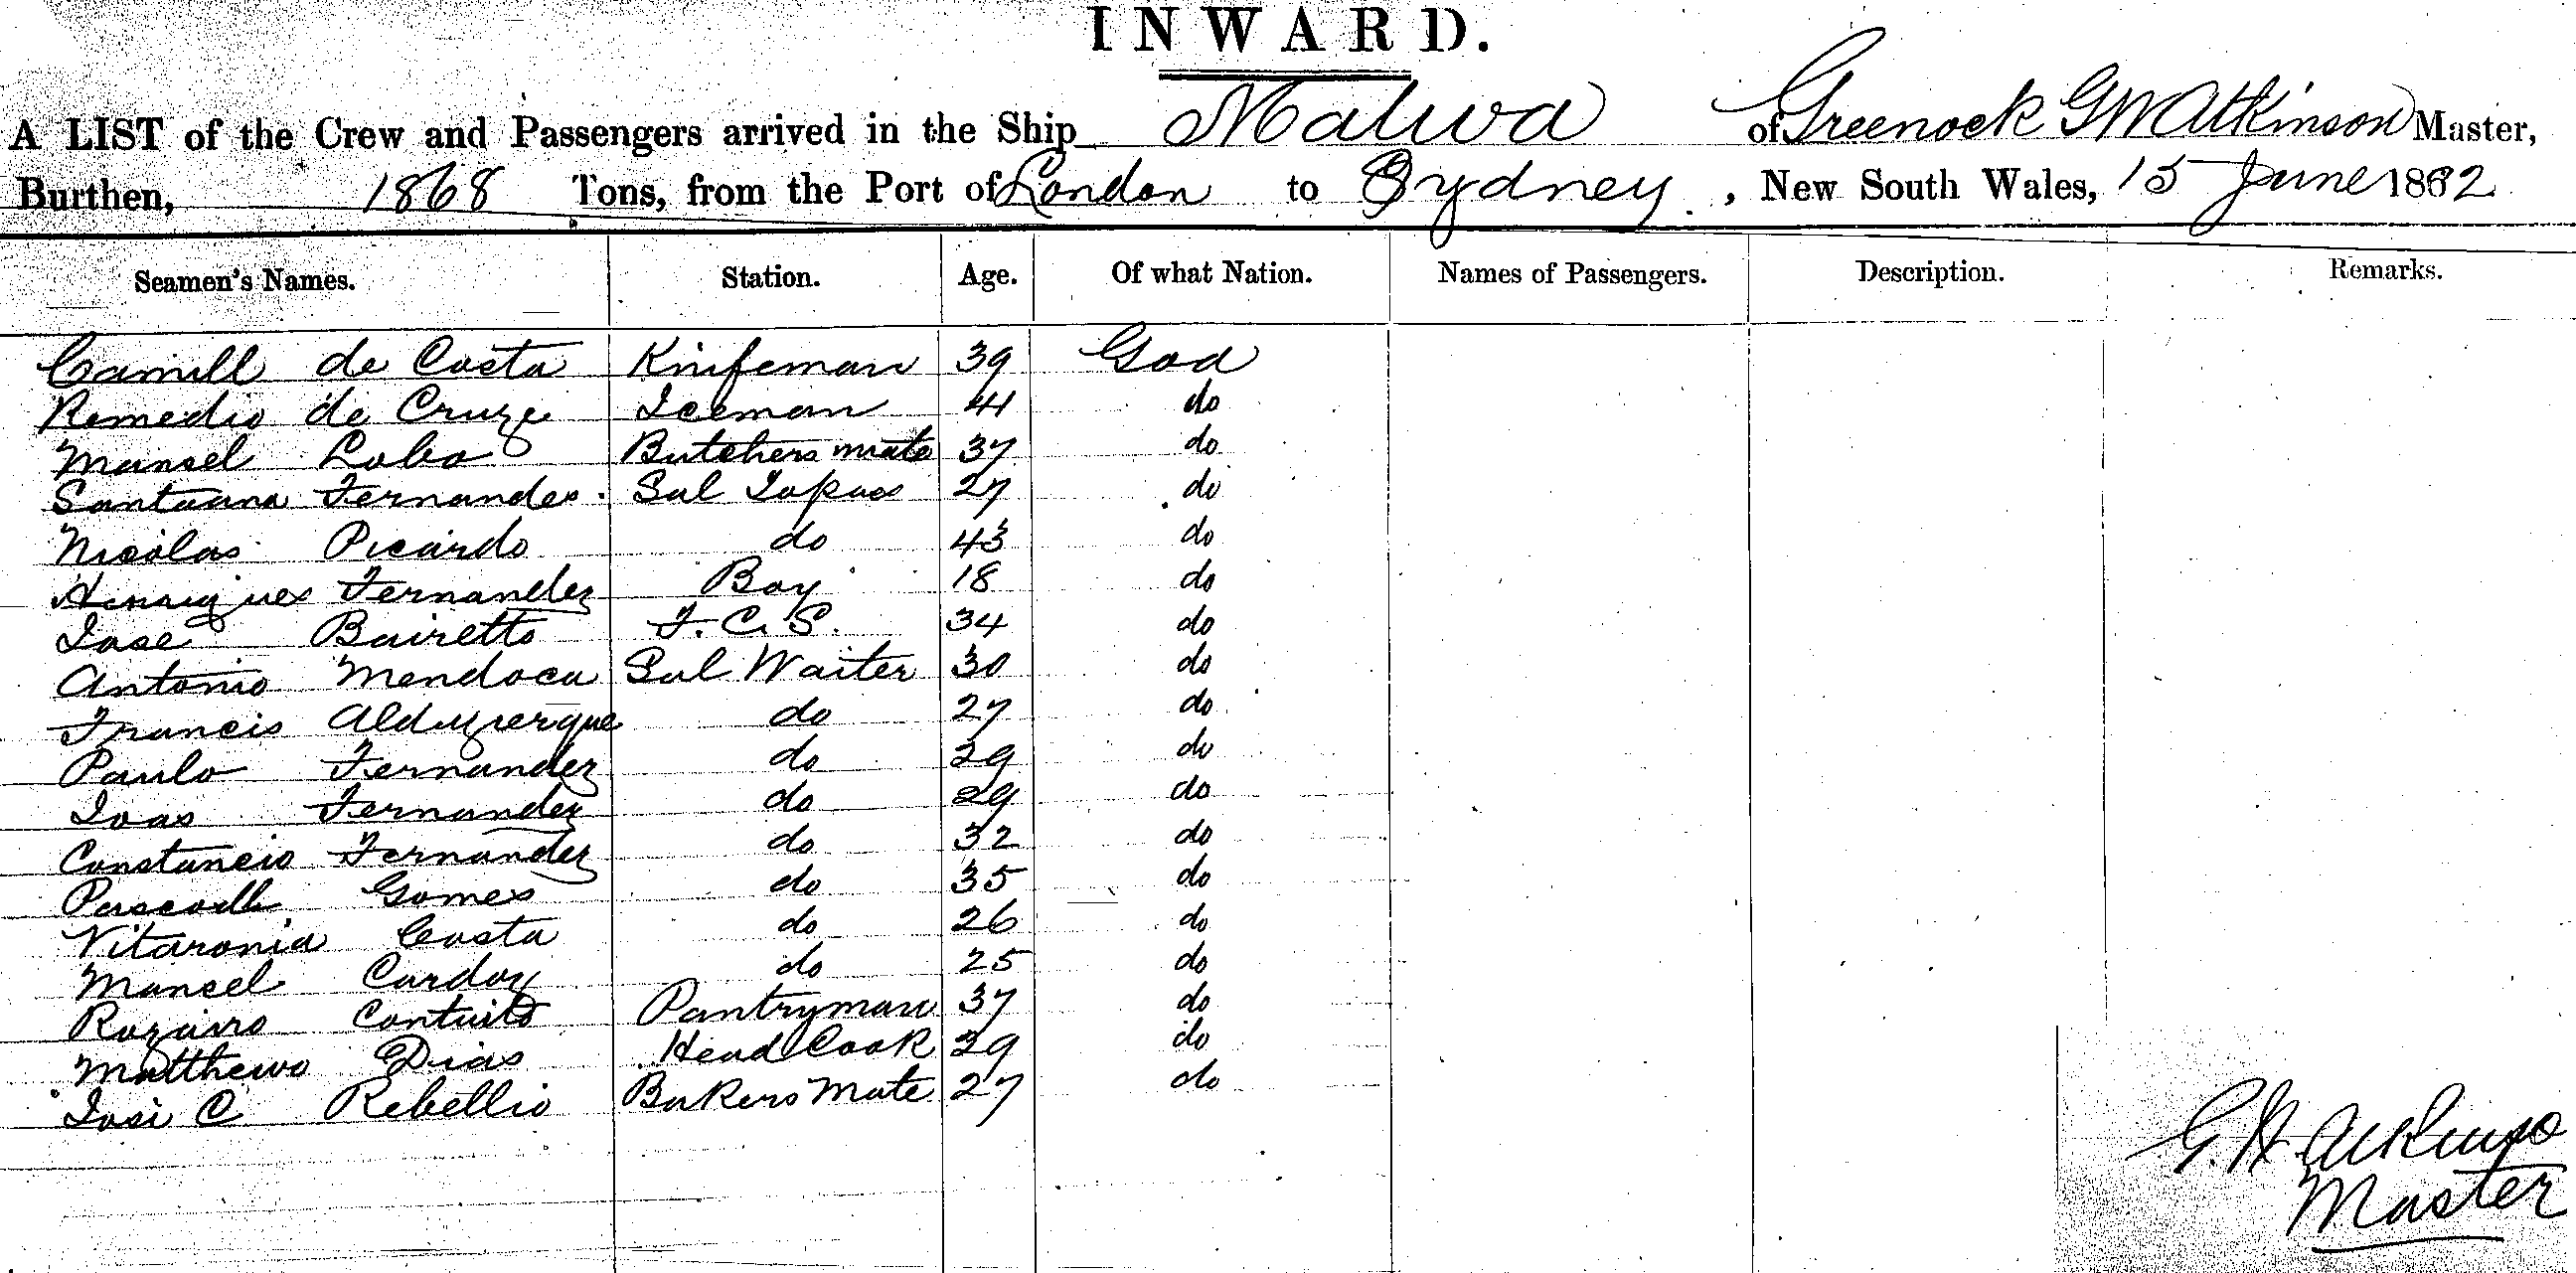 INWARD.
A LIST of the Crew and Passengers arrived in the Ship Malwa of Greenock G W Atkinson Master,
Burthen, 1868 Tons, from the Port of London to Sydney, New South Wales, 15 June 1882
Seamen's Names. Station. Age. Of what Nation. Names of Passengers. Description. Remarks.
Camill de Costa Knifeman 39 Goa
Remedio de Cruze Iceman 41 do
Manoel Lobo Butchers mate 37 do
Santanna Fernandes. Sal Topass 27 do
Nicolas Picardo do 43 do
Henriques Fernandez Boy 18 do
Jose Bairetto F. C. S. 34 do
Antonio Mendoca Sal Waiter 30 do
Francis Alduquerque do 27 do
Paulo Fernandez do 29 do
Joas Fernandez do 29 do
Constancio Fernandez do 32 do
Gomes do 35 do
Vitaronia Costa do 26 do
Manoel Cardoz do 25 do
Rozairo Pantryman 37 do
Matthews Dias Head Cook 39 do
Josi C Rebellio Bakers Mate 27 do
G. W Atkinson
Master